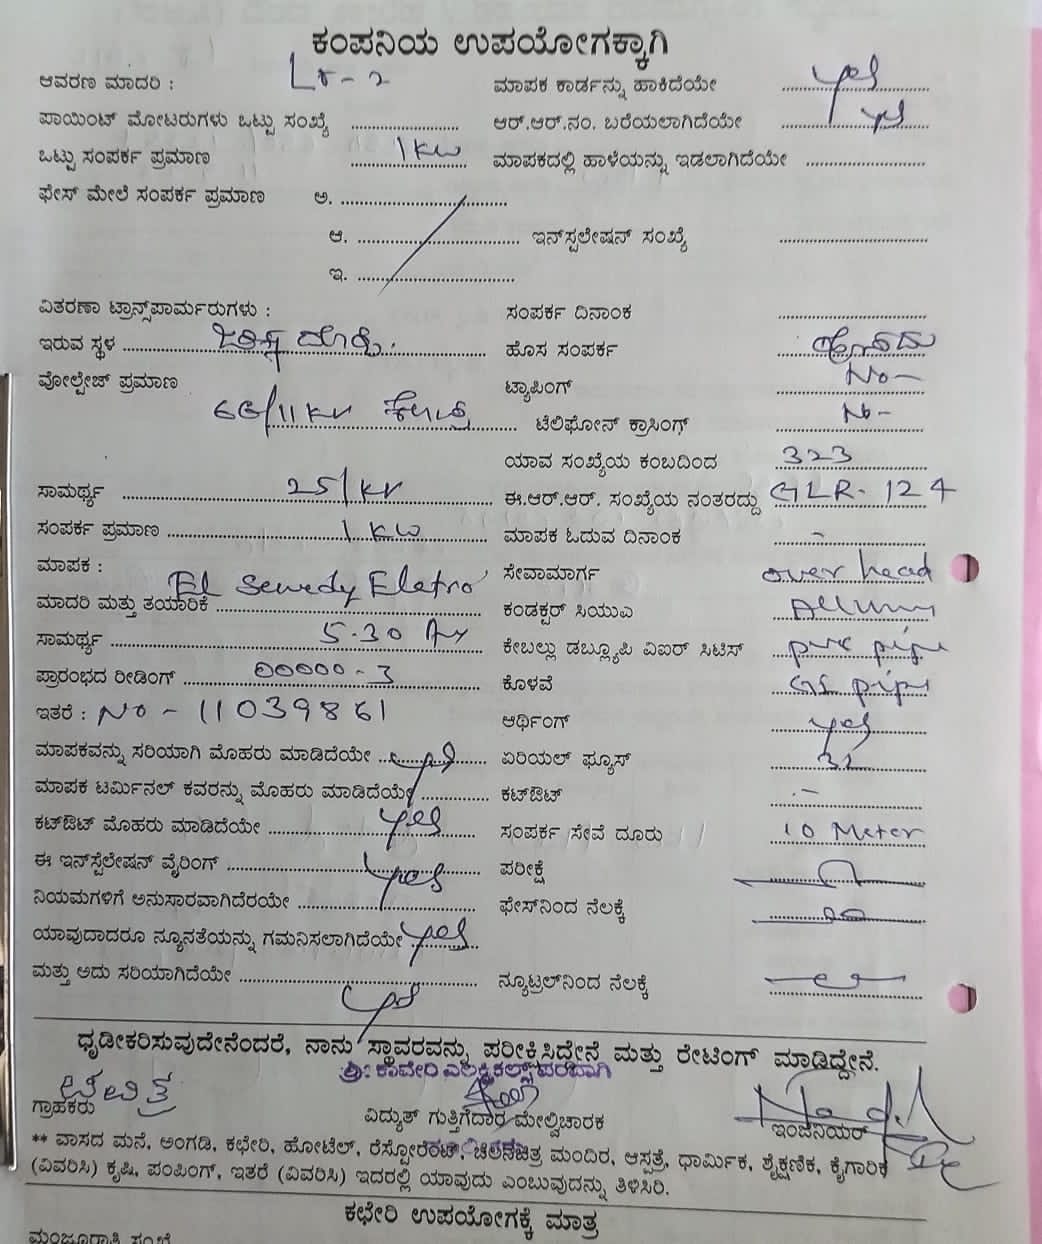 ಕಂಪನಿಯ ಉಪಯೋಗಕ್ಕಾಗಿ
ಆವರಣ ಮಾದರಿ : LT-2 ಮಾಪಕ ಕಾರ್ಡನ್ನು ಹಾಕಿದೆಯೇ yes
ಪಾಯಿಂಟ್ ಮೋಟರುಗಳು ಒಟ್ಟು ಸಂಖ್ಯೆ ಆರ್.ಆರ್.ನಂ. ಬರೆಯಲಾಗಿದೆಯೇ yes
ಒಟ್ಟು ಸಂಪರ್ಕ ಪ್ರಮಾಣ 1 KW ಮಾಪಕದಲ್ಲಿ ಹಾಳೆಯನ್ನು ಇಡಲಾಗಿದೆಯೇ
ಫೇಸ್ ಮೇಲೆ ಸಂಪರ್ಕ ಪ್ರಮಾಣ ಅ.
ಆ. ಇನ್‌ಸ್ಪಲೇಷನ್ ಸಂಖ್ಯೆ
ಇ.
ವಿತರಣಾ ಟ್ರಾನ್ಸ್‌ಪಾರ್ಮರುಗಳು : ಸಂಪರ್ಕ ದಿನಾಂಕ
ಇರುವ ಸ್ಥಳ ಹೊಸ ಸಂಪರ್ಕ ಹೌದು
ವೋಲ್ಟೇಜ್ ಪ್ರಮಾಣ ಟ್ಯಾಪಿಂಗ್ No-
66/11 KV ಟೆಲಿಫೋನ್ ಕ್ರಾಸಿಂಗ್ No-
ಯಾವ ಸಂಖ್ಯೆಯ ಕಂಬದಿಂದ 323
ಸಾಮರ್ಥ್ಯ 25/KV ಈ.ಆರ್.ಆರ್. ಸಂಖ್ಯೆಯ ನಂತರದ್ದು GLR-124
ಸಂಪರ್ಕ ಪ್ರಮಾಣ 1 KW ಮಾಪಕ ಓದುವ ದಿನಾಂಕ -
ಮಾಪಕ : ಸೇವಾಮಾರ್ಗ over head
ಮಾದರಿ ಮತ್ತು ತಯಾರಿಕೆ El Sewedy Eletro ಕಂಡಕ್ಟರ್ ಸಿಯುಎ
ಸಾಮರ್ಥ್ಯ 5-30 ಕೇಬಲ್ಲು ಡಬ್ಲ್ಯೂಪಿ ವಿಐರ್ ಸಿಟಿಸ್ pvc pipe
ಪ್ರಾರಂಭದ ರೀಡಿಂಗ್ 00000-3 ಕೊಳವೆ GS pipe
ಇತರೆ : No - 11039861 ಆರ್ಥಿಂಗ್ yes
ಮಾಪಕವನ್ನು ಸರಿಯಾಗಿ ಮೊಹರು ಮಾಡಿದೆಯೇ yes ಏರಿಯಲ್ ಫ್ಯೂಸ್ 32
ಮಾಪಕ ಟರ್ಮಿನಲ್ ಕವರನ್ನು ಮೊಹರು ಮಾಡಿದೆಯೇ ಕಟ್‌ಔಟ್ -
ಕಟ್‌ಔಟ್ ಮೊಹರು ಮಾಡಿದೆಯೇ yes ಸಂಪರ್ಕ ಸೇವೆ ದೂರು 10 Meter
ಈ ಇನ್‌ಸ್ಪೆಲೇಷನ್ ವೈರಿಂಗ್ yes ಪರೀಕ್ಷೆ
ನಿಯಮಗಳಿಗೆ ಅನುಸಾರವಾಗಿದೆರಯೇ ಫೇಸ್‌ನಿಂದ ನೆಲಕ್ಕೆ
ಯಾವುದಾದರೂ ನ್ಯೂನತೆಯನ್ನು ಗಮನಿಸಲಾಗಿದೆಯೇ yes
ಮತ್ತು ಅದು ಸರಿಯಾಗಿದೆಯೇ yes ನ್ಯೂಟ್ರಲ್‌ನಿಂದ ನೆಲಕ್ಕೆ
ಧೃಡೀಕರಿಸುವುದೇನೆಂದರೆ, ನಾನು ಸ್ಥಾವರವನ್ನು ಪರೀಕ್ಷಿಸಿದ್ದೇನೆ ಮತ್ತು ರೇಟಿಂಗ್ ಮಾಡಿದ್ದೇನೆ.
ಶ್ರೀ ಕಾವೇರಿ ಎಲೆಕ್ಟ್ರಿಕಲ್ಸ್ ಪರವಾಗಿ
ಗ್ರಾಹಕರು ವಿದ್ಯುತ್ ಗುತ್ತಿಗೆದಾರ ಮೇಲ್ವಿಚಾರಕ ಇಂಜಿನಿಯರ್
** ವಾಸದ ಮನೆ, ಅಂಗಡಿ, ಕಛೇರಿ, ಹೋಟೆಲ್, ರೆಸ್ಟೋರೆಂಟ್, ಚಲನಚಿತ್ರ ಮಂದಿರ, ಆಸ್ಪತ್ರೆ, ಧಾರ್ಮಿಕ, ಶೈಕ್ಷಣಿಕ, ಕೈಗಾರಿಕೆ
(ವಿವರಿಸಿ) ಕೃಷಿ, ಪಂಪಿಂಗ್, ಇತರೆ (ವಿವರಿಸಿ) ಇದರಲ್ಲಿ ಯಾವುದು ಎಂಬುವುದನ್ನು ತಿಳಿಸಿರಿ.
ಕಛೇರಿ ಉಪಯೋಗಕ್ಕೆ ಮಾತ್ರ